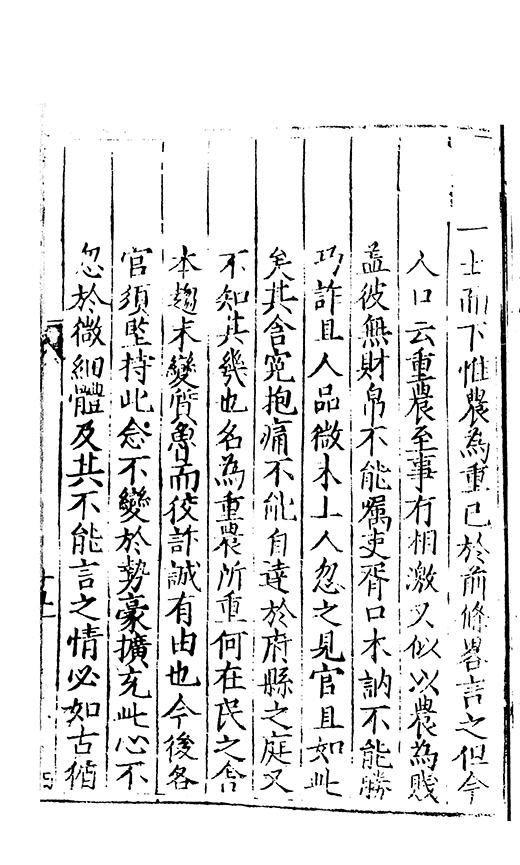 一士而下惟農為重已於前條畧言之但今
人口云重農至事有相激又似以農為賤
盖彼無財帛不能嘱吏胥口木訥不能勝
巧詐且人品微末上人忽之見官且如此
矣其含寃抱痛不能自達於府縣之庭又
不知其幾也名為重農所重何在民之舎
本趨末變質魯而役詐誠有由也今後各
官須堅持此念不變於勢豪擴充此心不
忽於微細體及其不能言之情必如古循